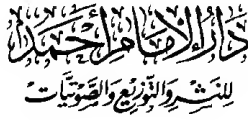 دَارُ الإِمَامِ أَحْمَدَ
لِلنَّشْرِ وَالتَّوْزِيعِ وَالصَّوْتِيَّاتِ